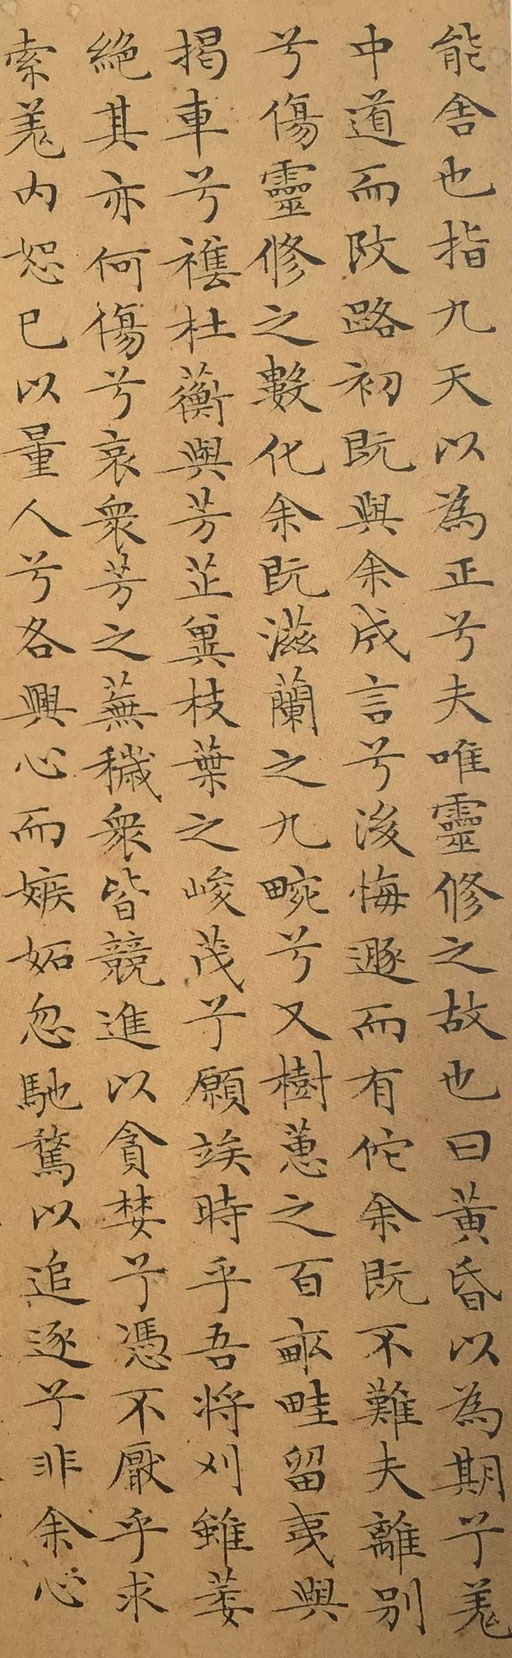 能舍也指九天以為正兮夫唯靈修之故也曰黄昏以為期兮羌
中道而改路初既與余成言兮後悔遯而有佗余既不難夫離别
兮傷靈修之數化余既滋蘭之九畹兮又樹蕙之百畝畦留夷與
揭車兮襍杜蘅與芳芷兾枝葉之峻茂兮願竢時乎吾将刈雖萎
絶其亦何傷兮哀衆芳之蕪穢衆皆競進以貪婪兮憑不厭乎求
索羌内恕已以量人兮各興心而嫉妬忽馳騖以追逐兮非余心